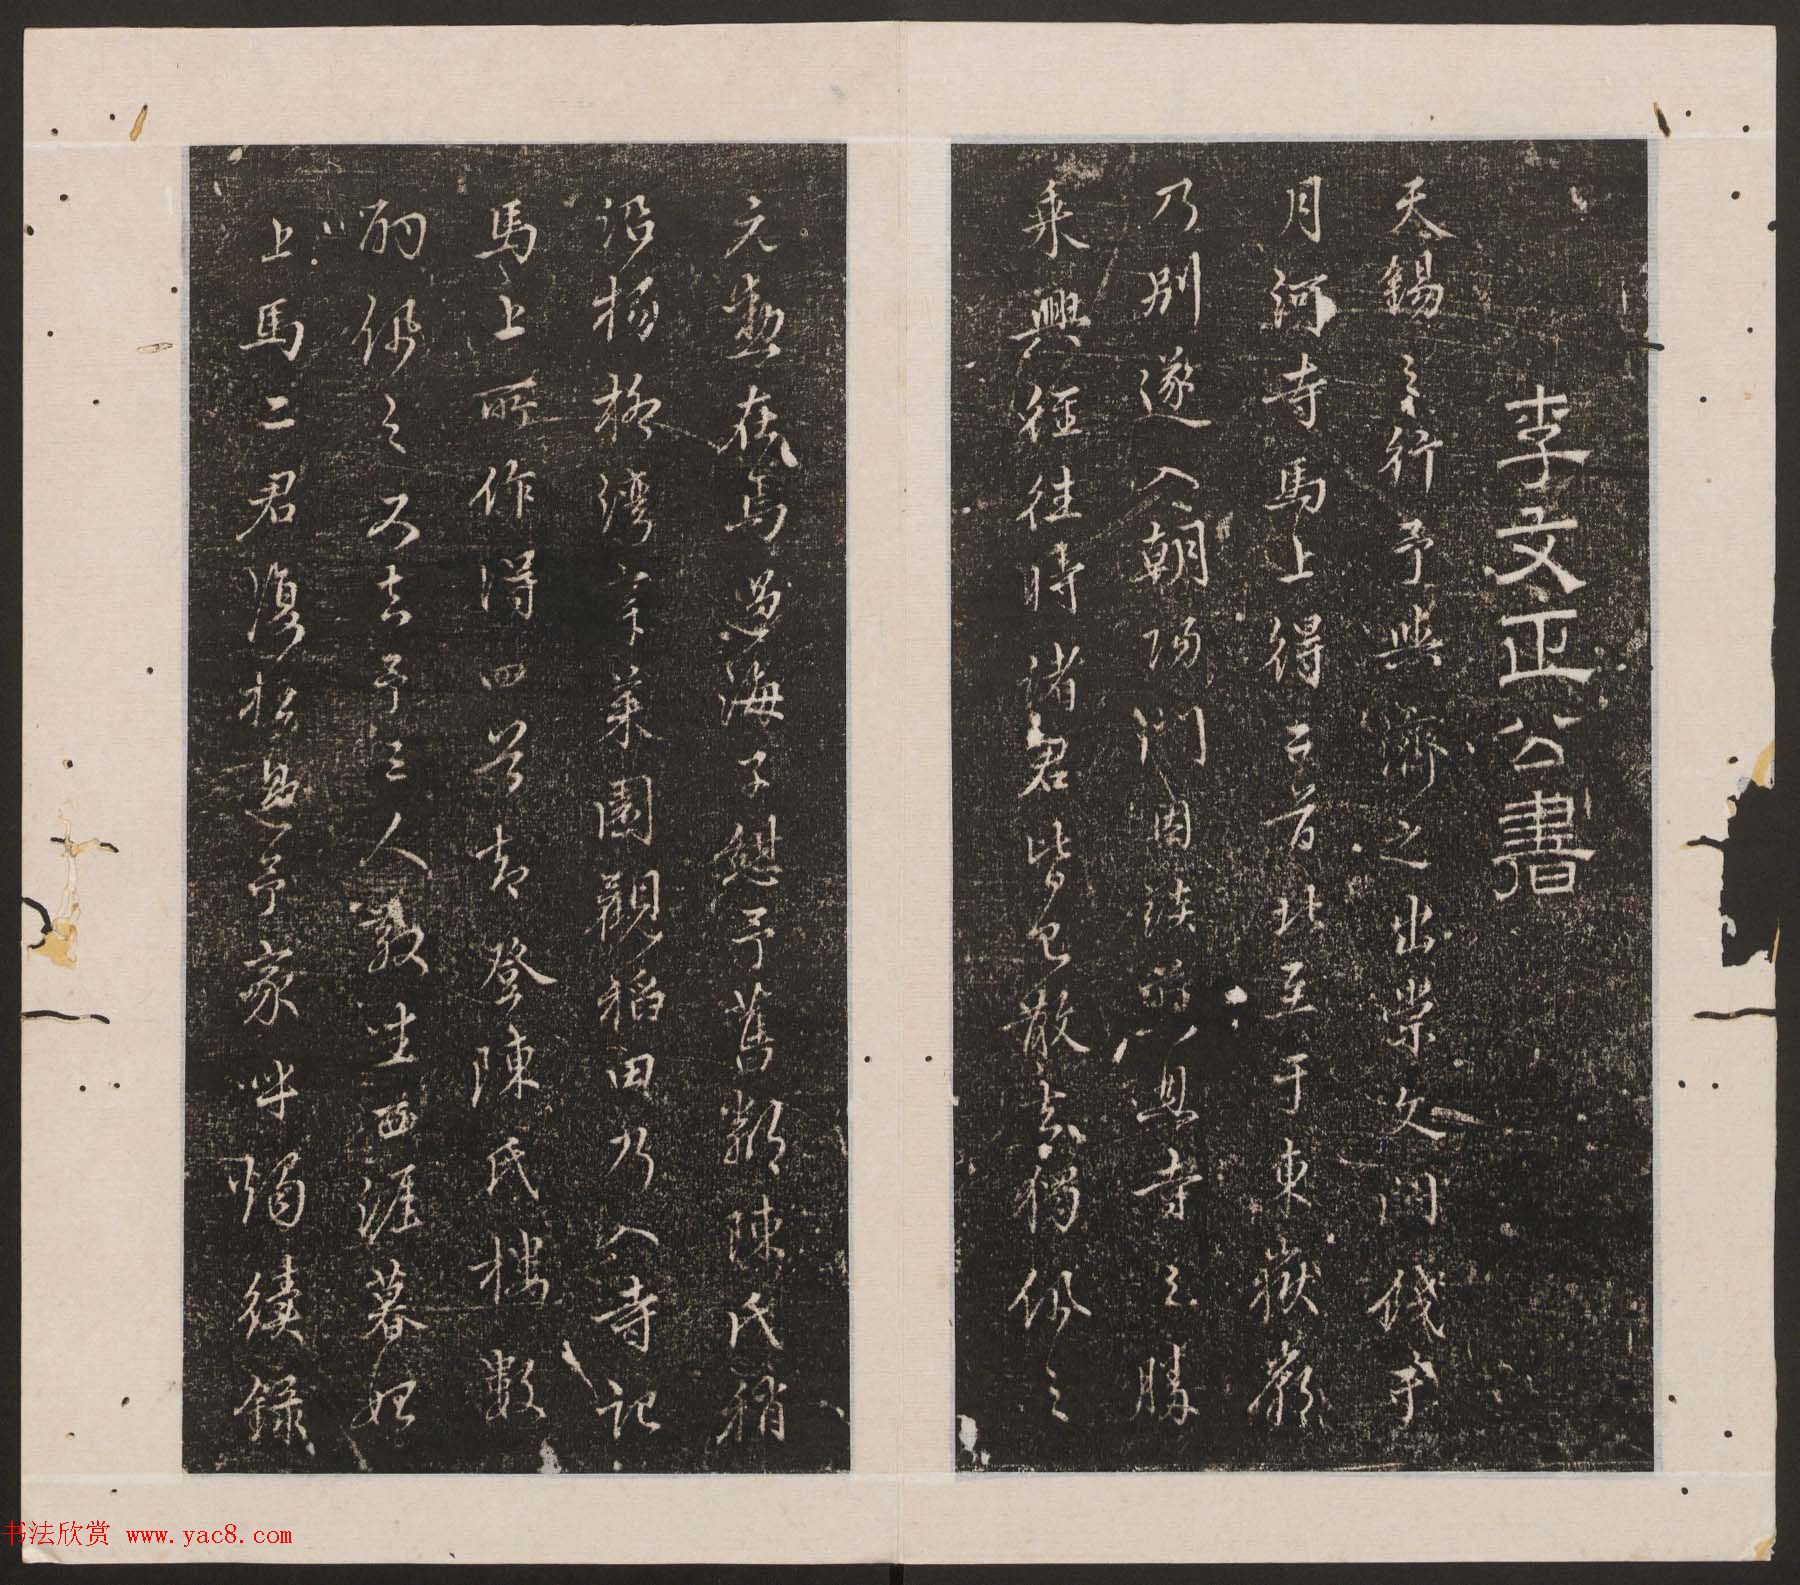 李文正公書
天錫之行予與濟之出崇文門餞于
月河寺馬上得五首北至于東嶽廟
乃別遂入朝陽門因談慈恩寺之勝
乘興徑往時諸君皆已散去獨佩之
元勳在焉過海子憩予舊鄰陳氏稍
沿楊柳灣穿菜園觀稻田乃入寺記
馬上所作得四首却登陳氏樓數
酌佩之又去予三人散坐西涯暮始
上馬二君復枉過予家呼燭續錄
书法欣赏 www.yac8.com